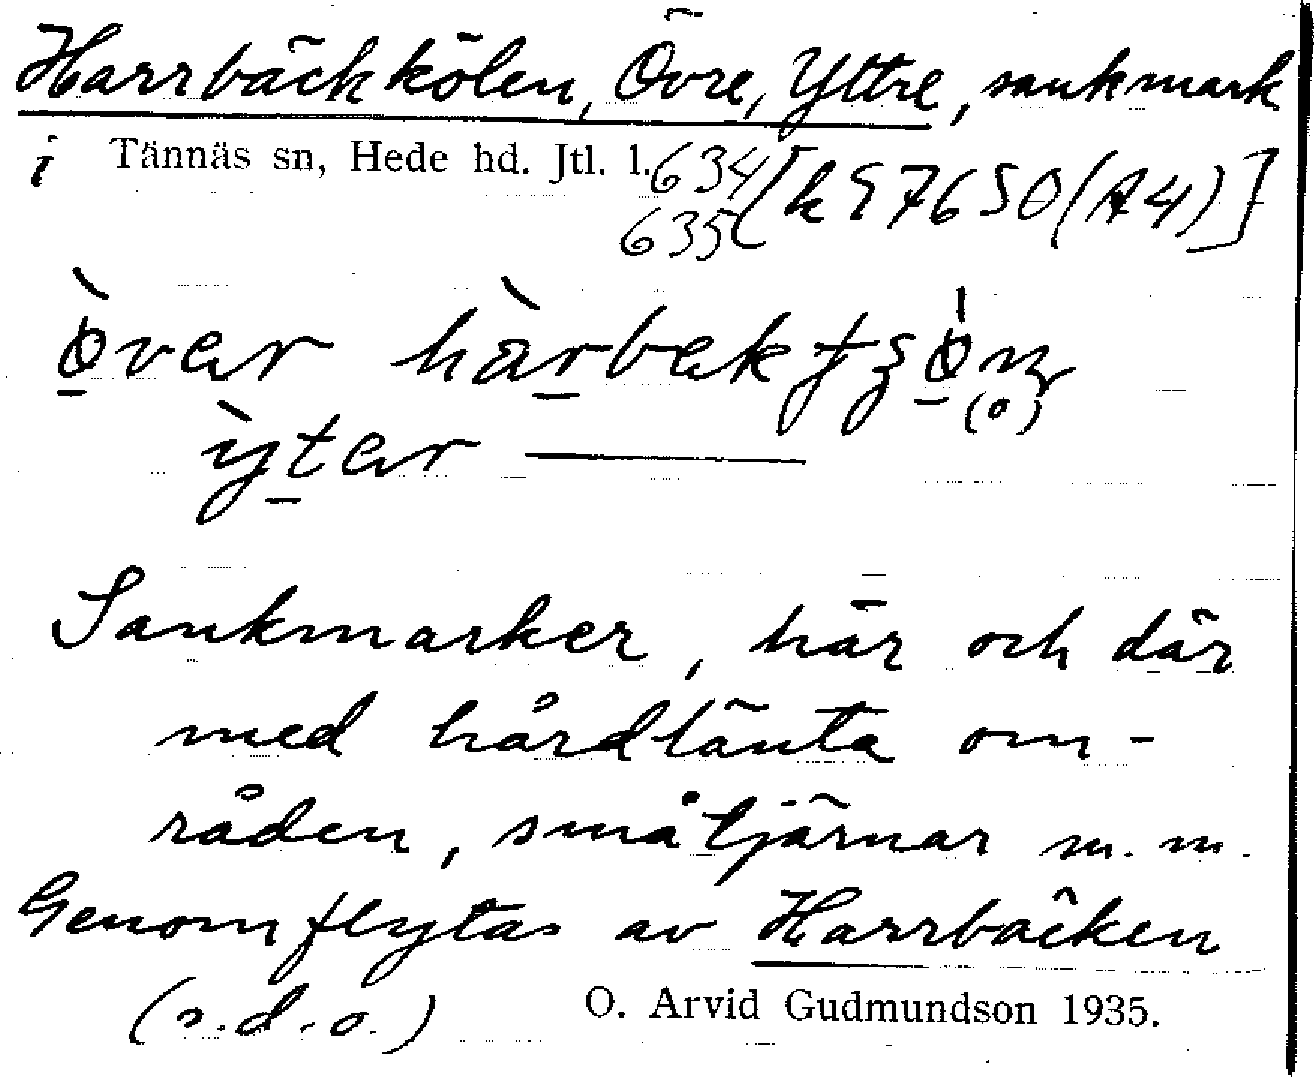 Harrbäckkölen, Övre, Yttre, sankmark
i Tännäs sn, Hede hd. Jtl. l. 634 [k 97650 (A4)]
635
òvar hàrbek
ỳtar ———
Sankmarker, här och där
med hårdlänta om-
råden, småtjärnar m. m.
Genomflytas av Harrbäcken
(s.d.o.) O. Arvid Gudmundson 1935.